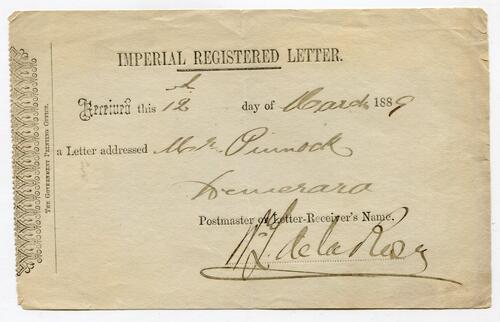 IMPERIAL REGISTERED LETTER.
Received this 12 day of March 1889
a Letter addressed Mr Pinnock
Demerara
Postmaster or Letter-Receiver's Name.
de la Rosa
THE GOVERNMENT PRINTING OFFICE.